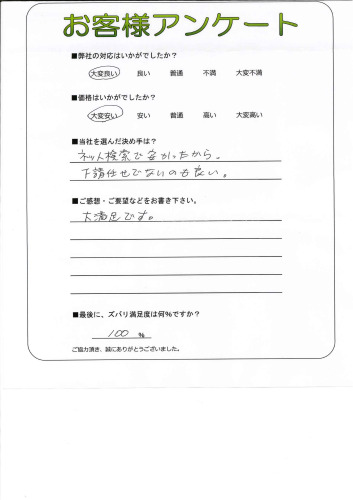 お客様アンケート
■弊社の対応はいかがでしたか?
大変良い 良い 普通 不満 大変不満
■価格はいかがでしたか?
大変安い 安い 普通 高い 大変高い
■当社を選んだ決め手は?
ネット検索で安かったから。
下請任せでないのも良い。
■ご感想・ご要望などをお書き下さい。
大満足です。
■最後に、ズバリ満足度は何%ですか?
100 %
ご協力頂き、誠にありがとうございました。